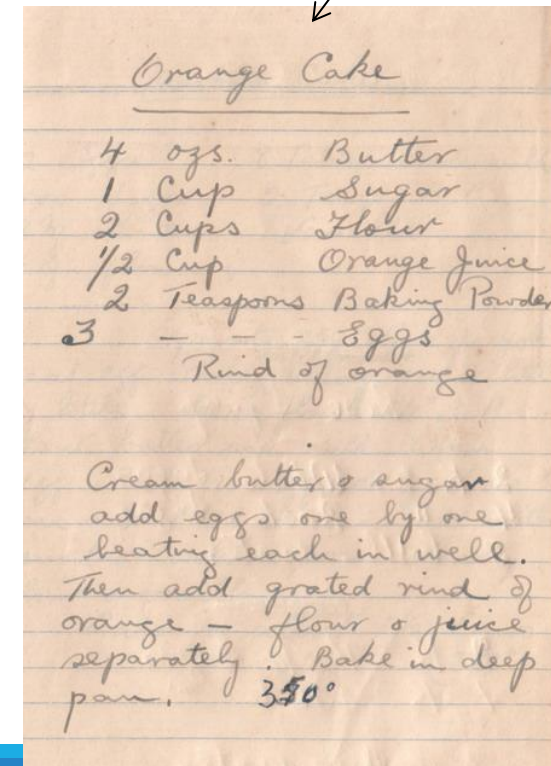 Orange Cake
4 ozs. Butter
1 Cup Sugar
2 Cups Flour
1/2 Cup Orange Juice
2 Teaspoons Baking Powder
3 - - - Eggs
Rind of orange
Cream butter & sugar
add eggs one by one
beating each in well.
Then add grated rind of
orange — flour & juice
separately. Bake in deep
pan. 350°